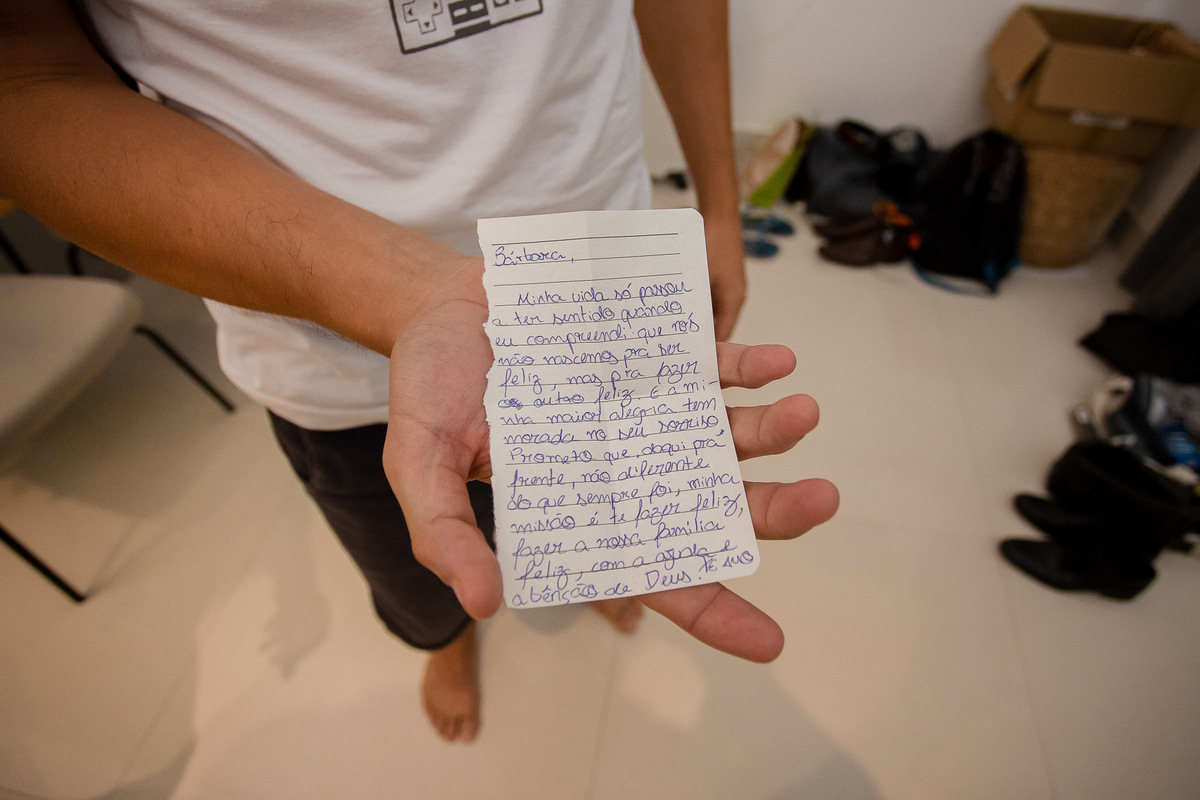 Bárbara,
Minha vida só passou
a ter sentido quando
eu compreendi que nós
não nascemos pra ser
feliz, mas pra fazer
outro feliz. E a mi-
nha maior alegria tem
morada no seu sorriso
Prometo que, daqui pra
frente, não diferente
do que sempre foi, minha
missão é te fazer feliz,
fazer a nossa família
feliz, com a ajuda e
a bênção de Deus.